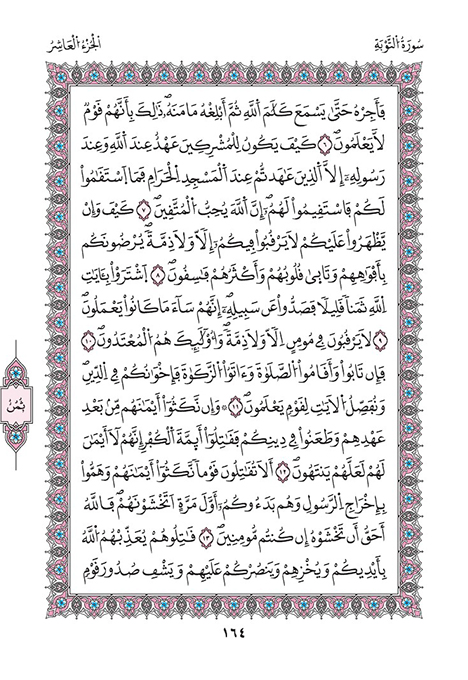 سُورَةُ اُلتَّوْبَةِ
اَلْجُزْءُ اُلْعَاشِرُ
فَأَجِرْهُ حَتَّىٰ يَسْمَعَ كَلَٰمَ اَللَّهِ ثُمَّ أَبْلِغْهُ مَامَنَهُۥ ذَٰلِكَ بِأَنَّهُمْ قَوْمٞ
لَّا يَعْلَمُونَ ٦ كَيْفَ يَكُونُ لِلْمُشْرِكِينَ عَهْدٌ عِندَ اَللَّهِ وَعِندَ
رَسُولِهِۦٓ إِلَّا اَلذِينَ عَٰهَدتُّمْ عِندَ اَلْمَسْجِدِ اِلْحَرَامِ فَمَا اَسْتَقَٰمُواْ
لَكُمْ فَاسْتَقِيمُواْ لَهُمُۥٓ إِنَّ اَللَّهَ يُحِبُّ اُلْمُتَّقِينَ ٧ كَيْفَ وَإِنْ
يَّظْهَرُواْ عَلَيْكُمْ لَا يَرْقُبُواْ فِيكُمُۥٓ إِلّٗا وَلَا ذِمَّةٗ يُرْضُونَكُم
بِأَفْوَٰهِهِمْ وَتَابَىٰ قُلُوبُهُمْ وَأَكْثَرُهُمْ فَٰسِقُونَ ٨ اَشْتَرَوْاْ بِـَٔايَٰتِ
اِللَّهِ ثَمَناٗ قَلِيلاٗ فَصَدُّواْ عَن سَبِيلِهِۦٓ إِنَّهُمْ سَآءَ مَا كَانُواْ يَعْمَلُونَ
٩ لَا يَرْقُبُونَ فِي مُومِنٍ اِلّٗا وَلَا ذِمَّةٗ وَأُوْلَٰٓئِكَ هُمُ اُلْمُعْتَدُونَ ١٠
فَإِن تَابُواْ وَأَقَامُواْ اُلصَّلَوٰةَ وَءَاتَوُاْ اُلزَّكَوٰةَ فَإِخْوَٰنُكُمْ فِي اِلدِّينِ
وَنُفَصِّلُ اُلْأيَٰتِ لِقَوْمٖ يَعْلَمُونَ ١١ وَإِن نَّكَثُوٓاْ أَيْمَٰنَهُم مِّنۢ بَعْدِ
عَهْدِهِمْ وَطَعَنُواْ فِي دِينِكُمْ فَقَٰتِلُوٓاْ أَئِمَّةَ اَلْكُفْرِ إِنَّهُمْ لَا أَيْمَٰنَ
لَهُمْ لَعَلَّهُمْ يَنتَهُونَ ١٢ أَلَا تُقَٰتِلُونَ قَوْماٗ نَّكَثُوٓاْ أَيْمَٰنَهُمْ وَهَمُّواْ
بِإِخْرَاجِ اِلرَّسُولِ وَهُم بَدَءُوكُمُۥٓ أَوَّلَ مَرَّةٍ اَتَخْشَوْنَهُمْ فَاللَّهُ
أَحَقُّ أَن تَخْشَوْهُ إِن كُنتُم مُّومِنِينَ ١٣ قَٰتِلُوهُمْ يُعَذِّبْهُمُ اُللَّهُ
بِأَيْدِيكُمْ وَيُخْزِهِمْ وَيَنصُرْكُمْ عَلَيْهِمْ وَيَشْفِ صُدُورَ قَوْمٖ
ثُمُنْ
١٦٤